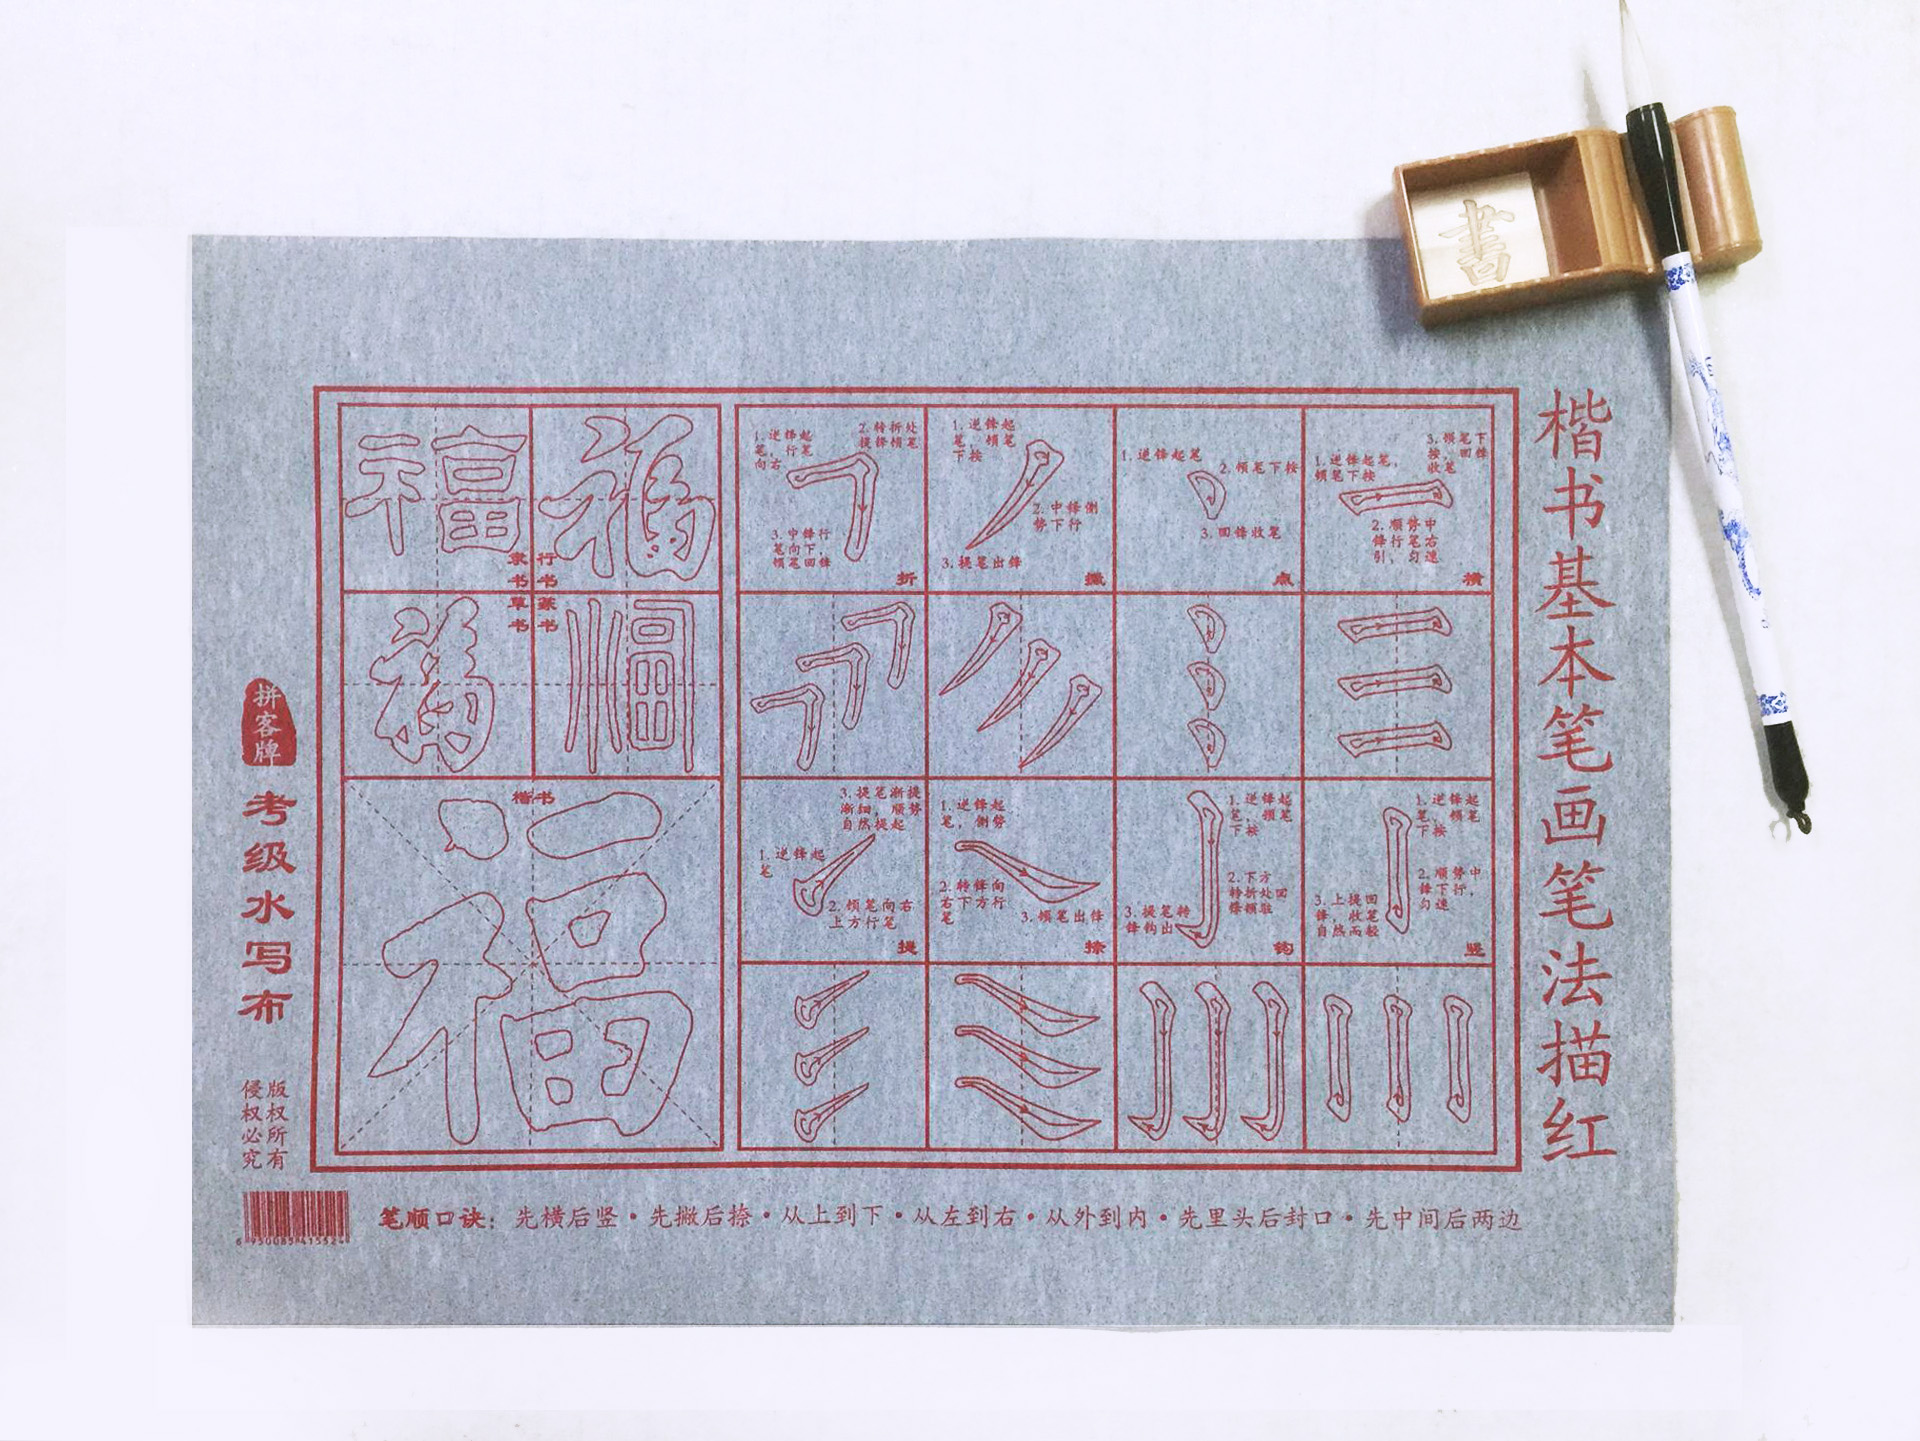 書
楷书基本笔画笔法描红
1. 逆锋起笔，顿笔下按
2. 顺势中锋行笔右引，匀速
3. 顿笔下按，回锋收笔
横
1. 逆锋起笔
2. 顿笔下按
3. 回锋收笔
点
1. 逆锋起笔，顿笔下按
2. 中锋侧势下行
3. 提笔出锋
撇
1. 逆锋起笔，行笔向右
2. 转折处提锋顿笔
3. 中锋行笔向下，顿笔回锋
折
1. 逆锋起笔，顿笔下按
2. 顺势中锋下行，匀速
3. 上提回锋，收笔自然而轻
竖
1. 逆锋起笔，顿笔下按
2. 下方转折处回锋顿驻
3. 提笔转锋钩出
钩
1. 逆锋起笔，侧势
2. 转锋向右下方行笔
3. 顿笔出锋
捺
1. 逆锋起笔
2. 顿笔向右上方行笔
3. 提笔渐提渐细，顺势自然提起
提
福
行书
福
隶书
福
篆书
福
草书
楷书
福
拼客牌
考级水写布
版权所有
侵权必究
笔顺口诀：先横后竖·先撇后捺·从上到下·从左到右·从外到内·先里头后封口·先中间后两边